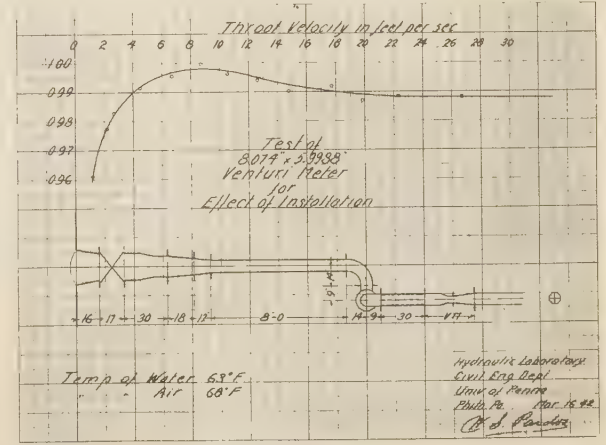 Throat Velocity in feet per sec
0 2 4 6 8 10 12 14 16 18 20 22 24 26 28 30
1.00
0.99
0.98
0.97
0.96
Test of
8.074" x 5.9938"
Venturi Meter
for
Effect of Installation
16 17 30 18 12 8'-0 14 9 30 V.M.
9" 14"
Temp of Water 69°F
" " Air 68°F
Hydraulic Laboratory
Civil Eng Dept
Univ of Penna
Phila Pa. Mar. 16 42
W. S. Pardoe